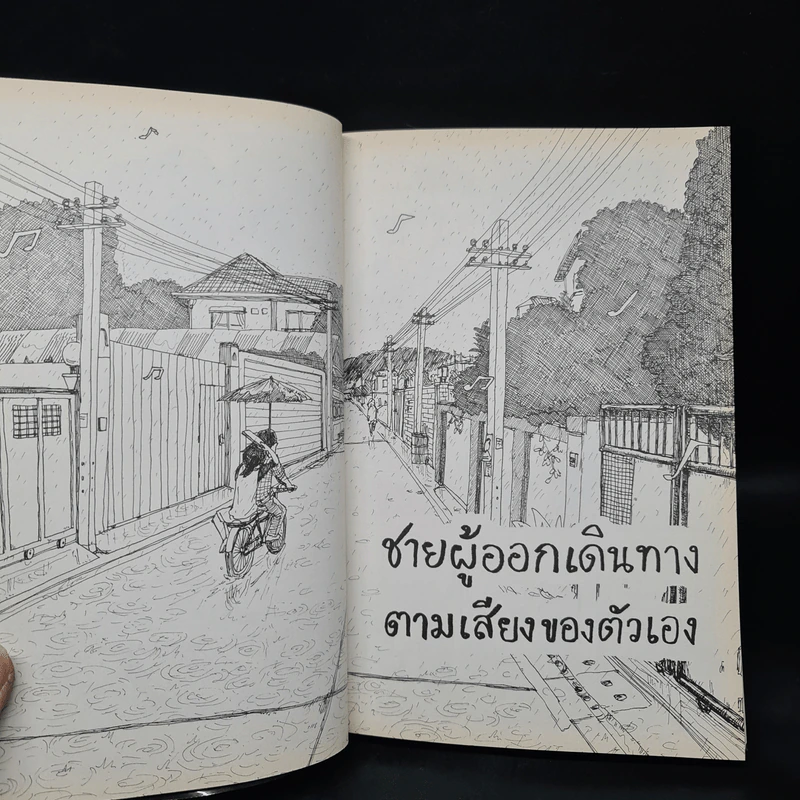 ชายผู้ออกเดินทาง
ตามเสียงของตัวเอง